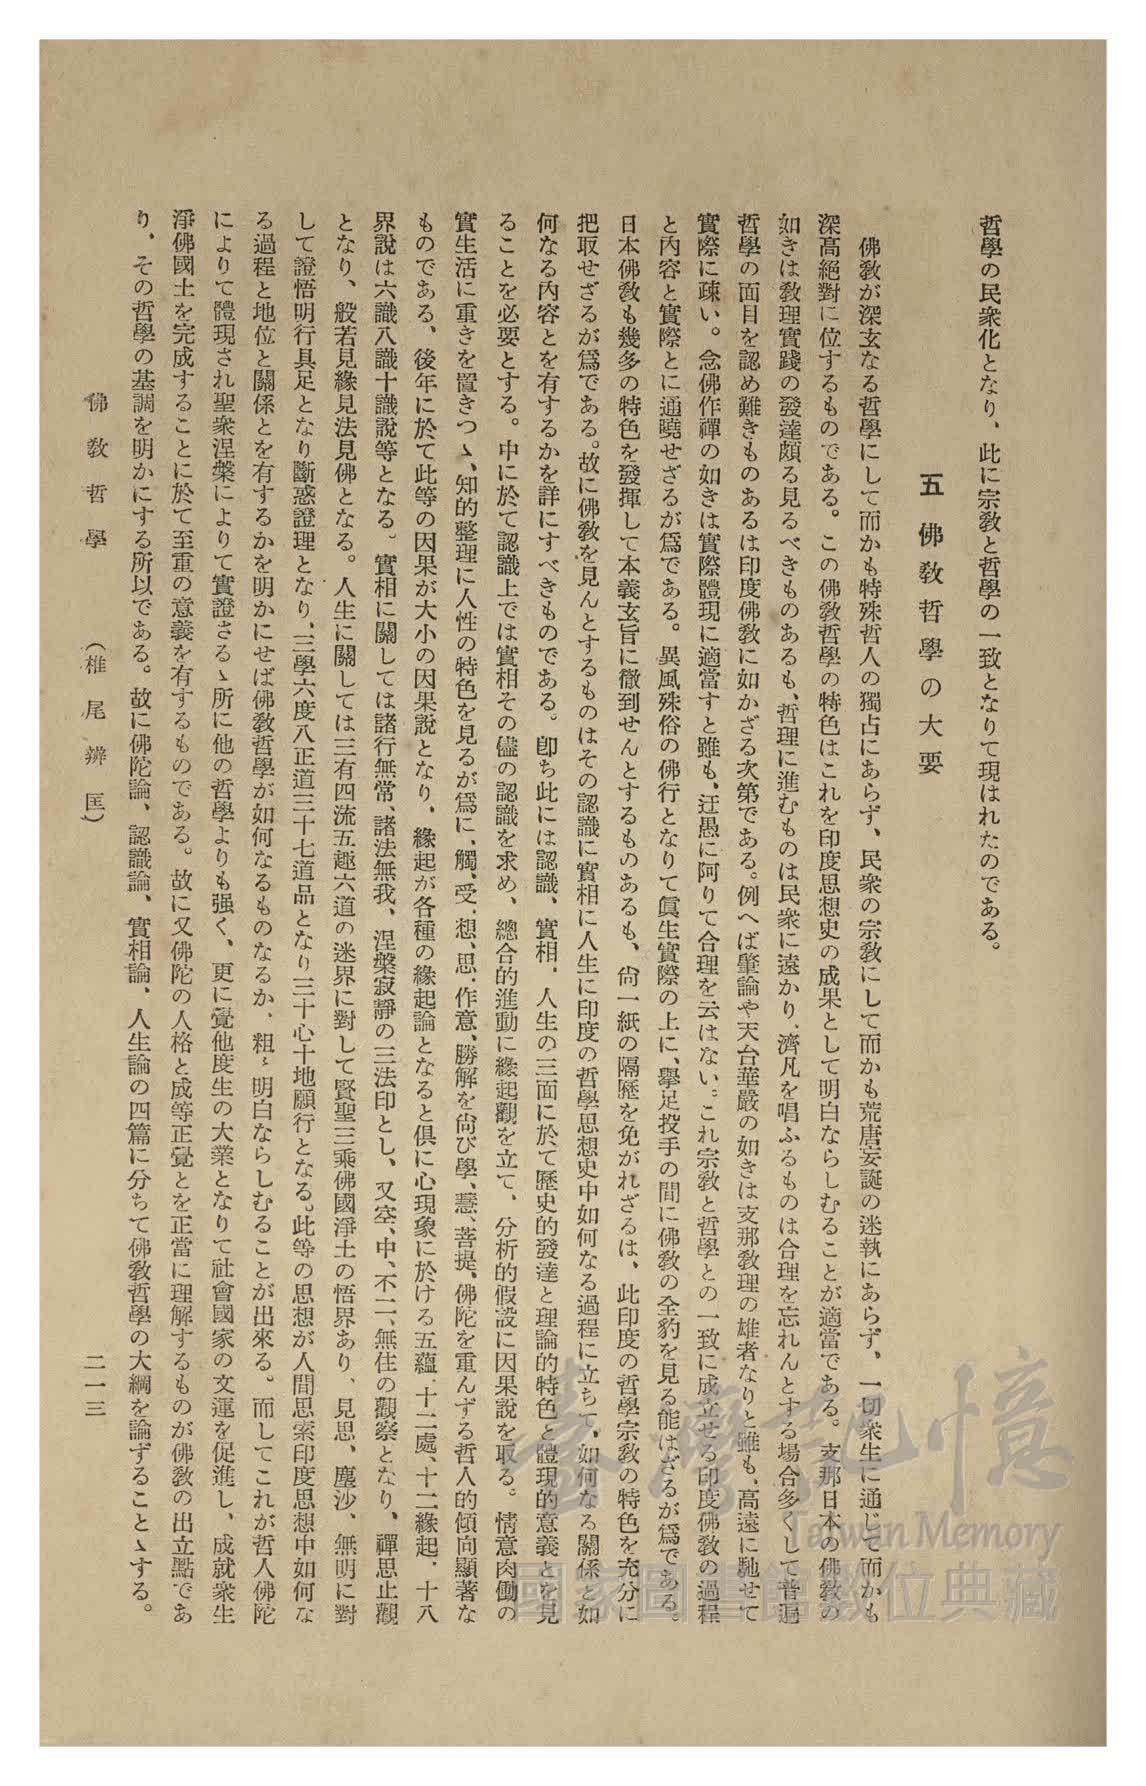 哲學の民衆化となり、此に宗敎と哲學の一致となりて現はれたのである。
五 佛敎哲學の大要
佛敎が深玄なる哲學にして而かも特殊哲人の獨占にあらず、民衆の宗敎にして而かも荒唐妄誕の迷執にあらず、一切衆生に通じて而かも
深高絕對に位するものである。この佛敎哲學の特色はこれを印度思想史の成果として明白ならしむることが適當である。支那日本の佛敎の
如きは敎理實踐の發達頗る見るべきものあるも、哲理に進むものは民衆に遠かり、濟凡を唱ふるものは合理を忘れんとする場合多くして普遍
哲學の面目を認め難きものあるは印度佛敎に如かざる次第である。例へば肇論や天台華嚴の如きは支那敎理の雄者なりと雖も、高遠に馳せて
實際に疎い。念佛作禪の如きは實際體現に適當すと雖も、迂愚に阿りて合理を云はない。これ宗敎と哲學との一致に成立せる印度佛敎の過程
と內容と實際とに通曉せざるが爲である。異風殊俗の佛行となりて眞生實際の上に、擧足投手の間に佛敎の全豹を見る能はざるが爲である。
日本佛敎も幾多の特色を發揮して本義玄旨に徹到せんとするものあるも、尙一紙の隔歷を免がれざるは、此印度の哲學宗敎の特色を充分に
把取せざるが爲である。故に佛敎を見んとするものはその認識に實相に人生に印度の哲學思想史中如何なる過程に立ちて、如何なる關係と如
何なる內容とを有するかを詳にすべきものである。卽ち此には認識、實相、人生の三面に於て歷史的發達と理論的特色と體現的意義とを見
ることを必要とする。中に於て認識上では實相その儘の認識を求め、總合的進動に緣起觀を立て、分析的假設に因果說を取る。情意肉働の
實生活に重きを置きつゝ、知的整理に人性の特色を見るが爲に、觸、受、想、思、作意、勝解を尙び學、慧、菩提、佛陀を重んずる哲人的傾向顯著な
ものである、後年に於て此等の因果が大小の因果說となり、緣起が各種の緣起論となると俱に心現象に於ける五蘊、十二處、十二緣起、十八
界說は六識八識十識說等となる。實相に關しては諸行無常、諸法無我、涅槃寂靜の三法印とし、又空、中、不二、無住の觀察となり、禪思止觀
となり、般若見緣見法見佛となる。人生に關しては三有四流五趣六道の迷界に對して賢聖三乘佛國淨土の悟界あり、見思、塵沙、無明に對
して證悟明行具足となり斷惑證理となり、三學六度八正道三十七道品となり三十心十地願行となる。此等の思想が人間思索印度思想中如何な
る過程と地位と關係とを有するかを明かにせば佛敎哲學が如何なるものなるか、粗〻明白ならしむることが出來る。而してこれが哲人佛陀
によりて體現され聖衆涅槃によりて實證さるゝ所に他の哲學よりも强く、更に覺他度生の大業となりて社會國家の文運を促進し、成就衆生
淨佛國土を完成することに於て至重の意義を有するものである。故に又佛陀の人格と成等正覺とを正當に理解するものが佛敎の出立點であ
り、その哲學の基調を明かにする所以である。故に佛陀論、認識論、實相論、人生論の四篇に分ちて佛敎哲學の大綱を論ずることゝする。
佛敎哲學 (椎尾辨匡)
二一三
臺灣記憶
Taiwan Memory
國家圖書館數位典藏